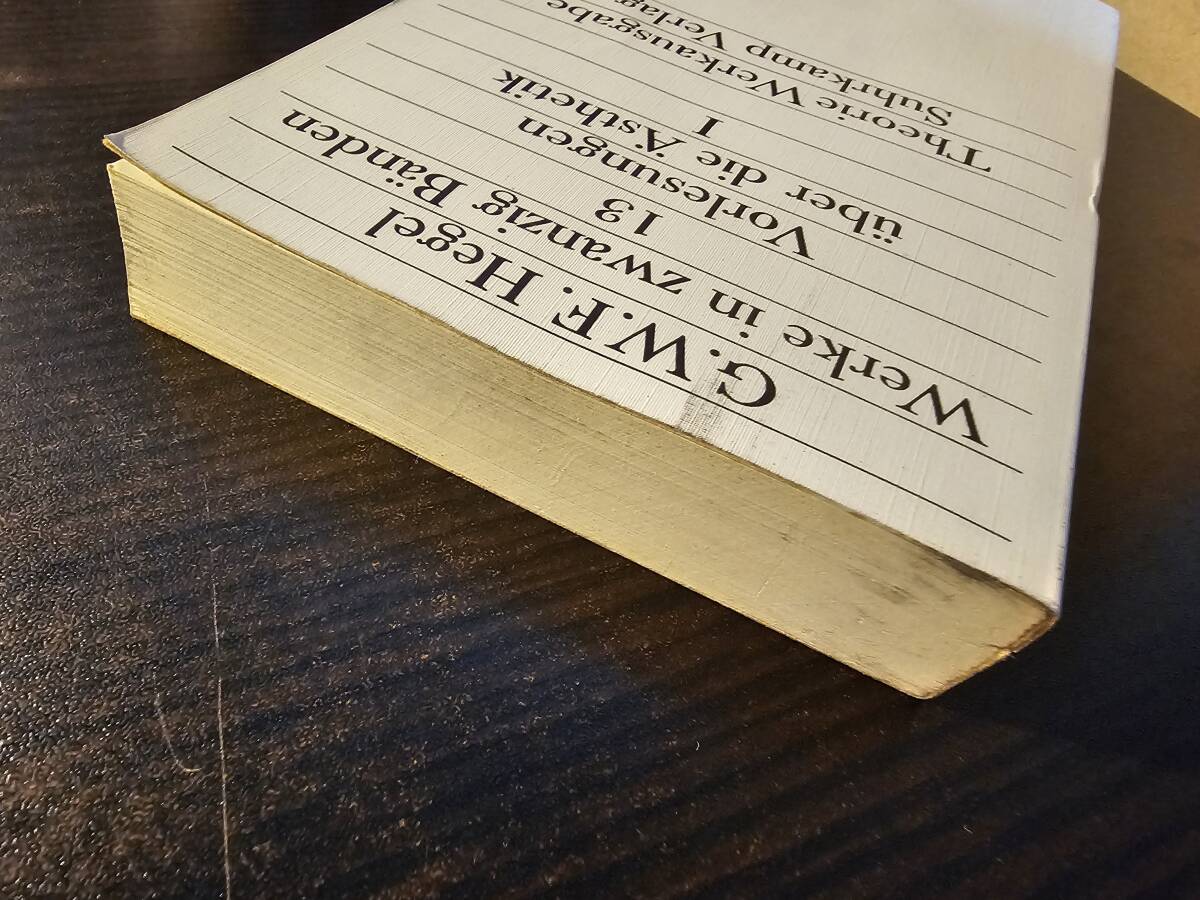 G.W.F. Hegel
Werke in zwanzig Bänden
13
Vorlesungen
über die Ästhetik
I
Theorie Werkausgabe
Suhrkamp Verlag